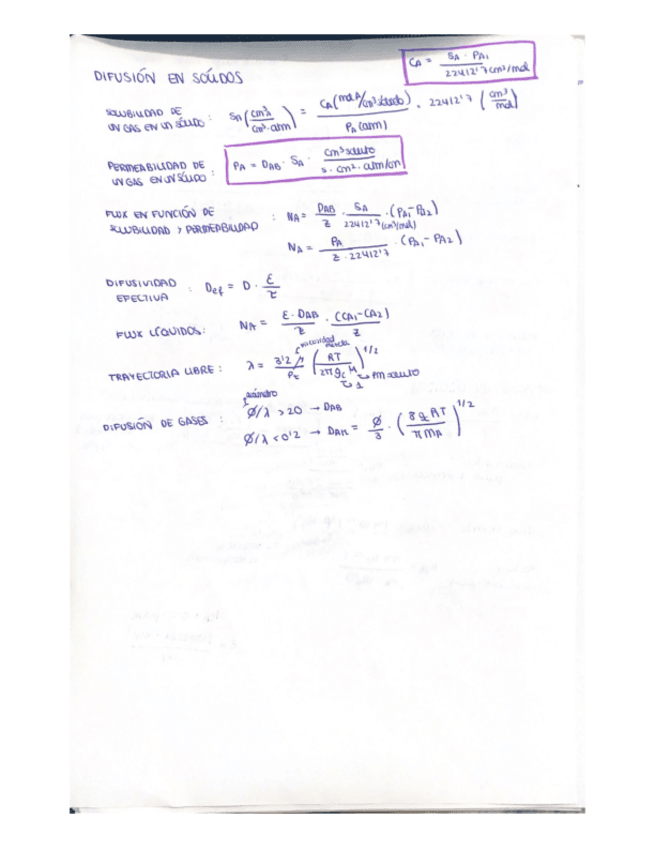 CA = SA · PA1 / 22412'7 cm³/mol
DIFUSIÓN EN SÓLIDOS
SOLUBILIDAD DE UN GAS EN UN SÓLIDO : SA (cm³A / cm³·atm) = CA (mol A/cm³ sólido) / PA (atm) · 22412'7 (cm³ / mol)
PERMEABILIDAD DE UN GAS EN UN SÓLIDO : PA = DAB · SA · cm³ soluto / s · cm² · atm/cm
FLUX EN FUNCIÓN DE SOLUBILIDAD Y PERMEABILIDAD : NA = DAB / Z · SA / 22412'7 (cm³/mol) · (PA1 - PA2)
NA = PA / Z · 22412'7 · (PA1 - PA2)
DIFUSIVIDAD EFECTIVA : Def = D · ε / τ
FLUX LÍQUIDOS : NA = ε · DAB / τ · (CA1 - CA2) / Z
viscosidad mezcla
TRAYECTORIA LIBRE : λ = 3'2 μ / Pt (RT / 2π gc M)^1/2
1 PM soluto
diámetro
DIFUSIÓN DE GASES : Ø/λ > 20 → DAB
Ø/λ < 0'2 → DAK = Ø / 3 · (8 gc RT / π MA)^1/2